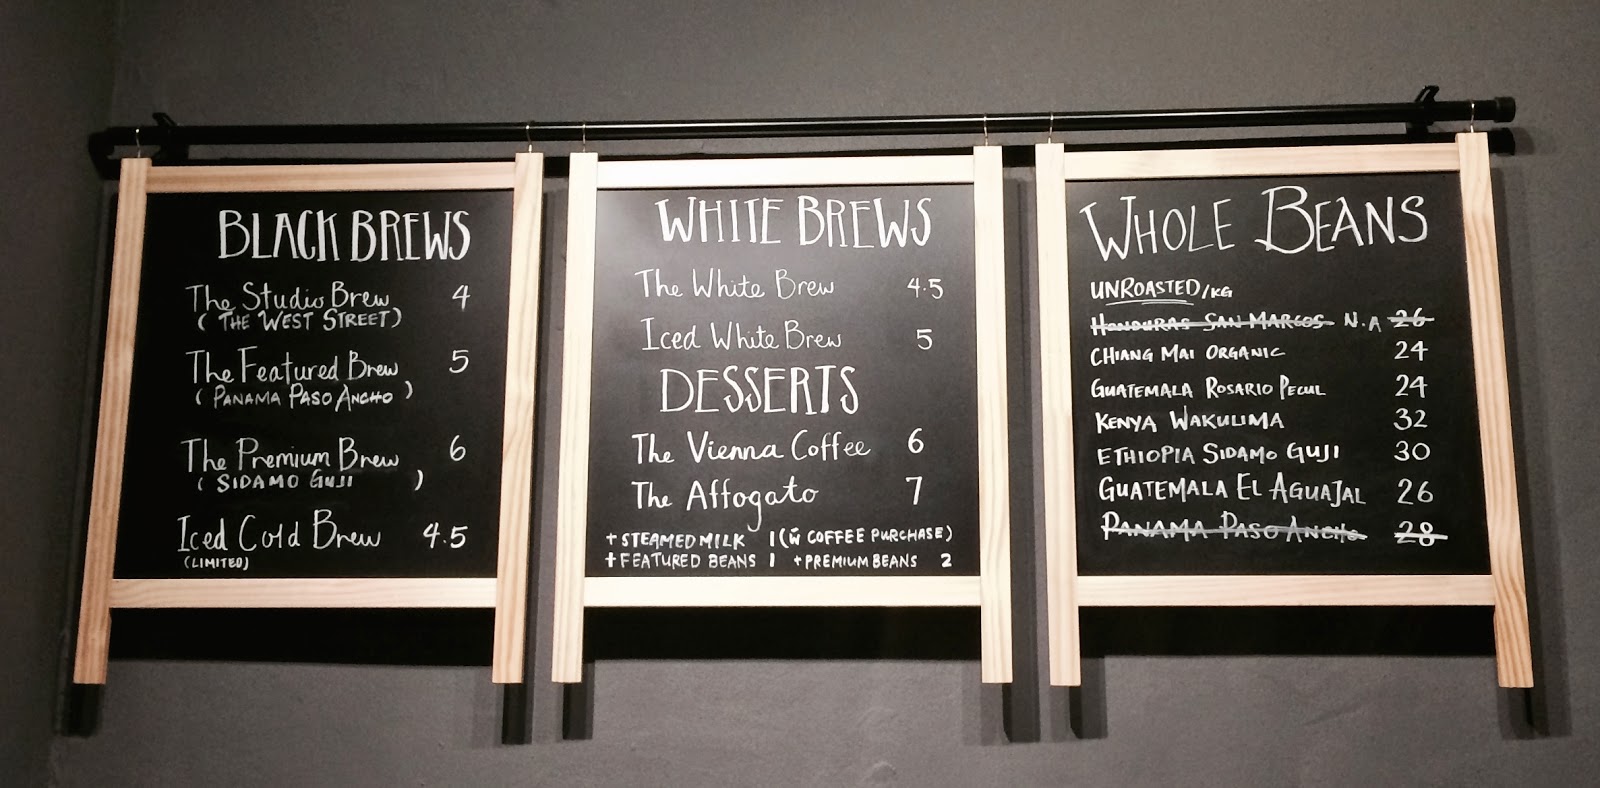 BLACK BREWS
The Studio Brew 4
(THE WEST STREET)
The Featured Brew 5
(PANAMA PASO ANCHO)
The Premium Brew 6
(SIDAMO GUJI)
Iced Cold Brew 4.5
(LIMITED)
WHITE BREWS
The White Brew 4.5
Iced White Brew 5
DESSERTS
The Vienna Coffee 6
The Affogato 7
+ STEAMED MILK 1 (w̃ COFFEE PURCHASE)
+ FEATURED BEANS 1 + PREMIUM BEANS 2
WHOLE BEANS
UNROASTED/KG
HONDURAS SAN MARCOS N.A 26
CHIANG MAI ORGANIC 24
GUATEMALA ROSARIO PECUL 24
KENYA WAKULIMA 32
ETHIOPIA SIDAMO GUJI 30
GUATEMALA EL AGUAJAL 26
PANAMA PASO ANCHO 28